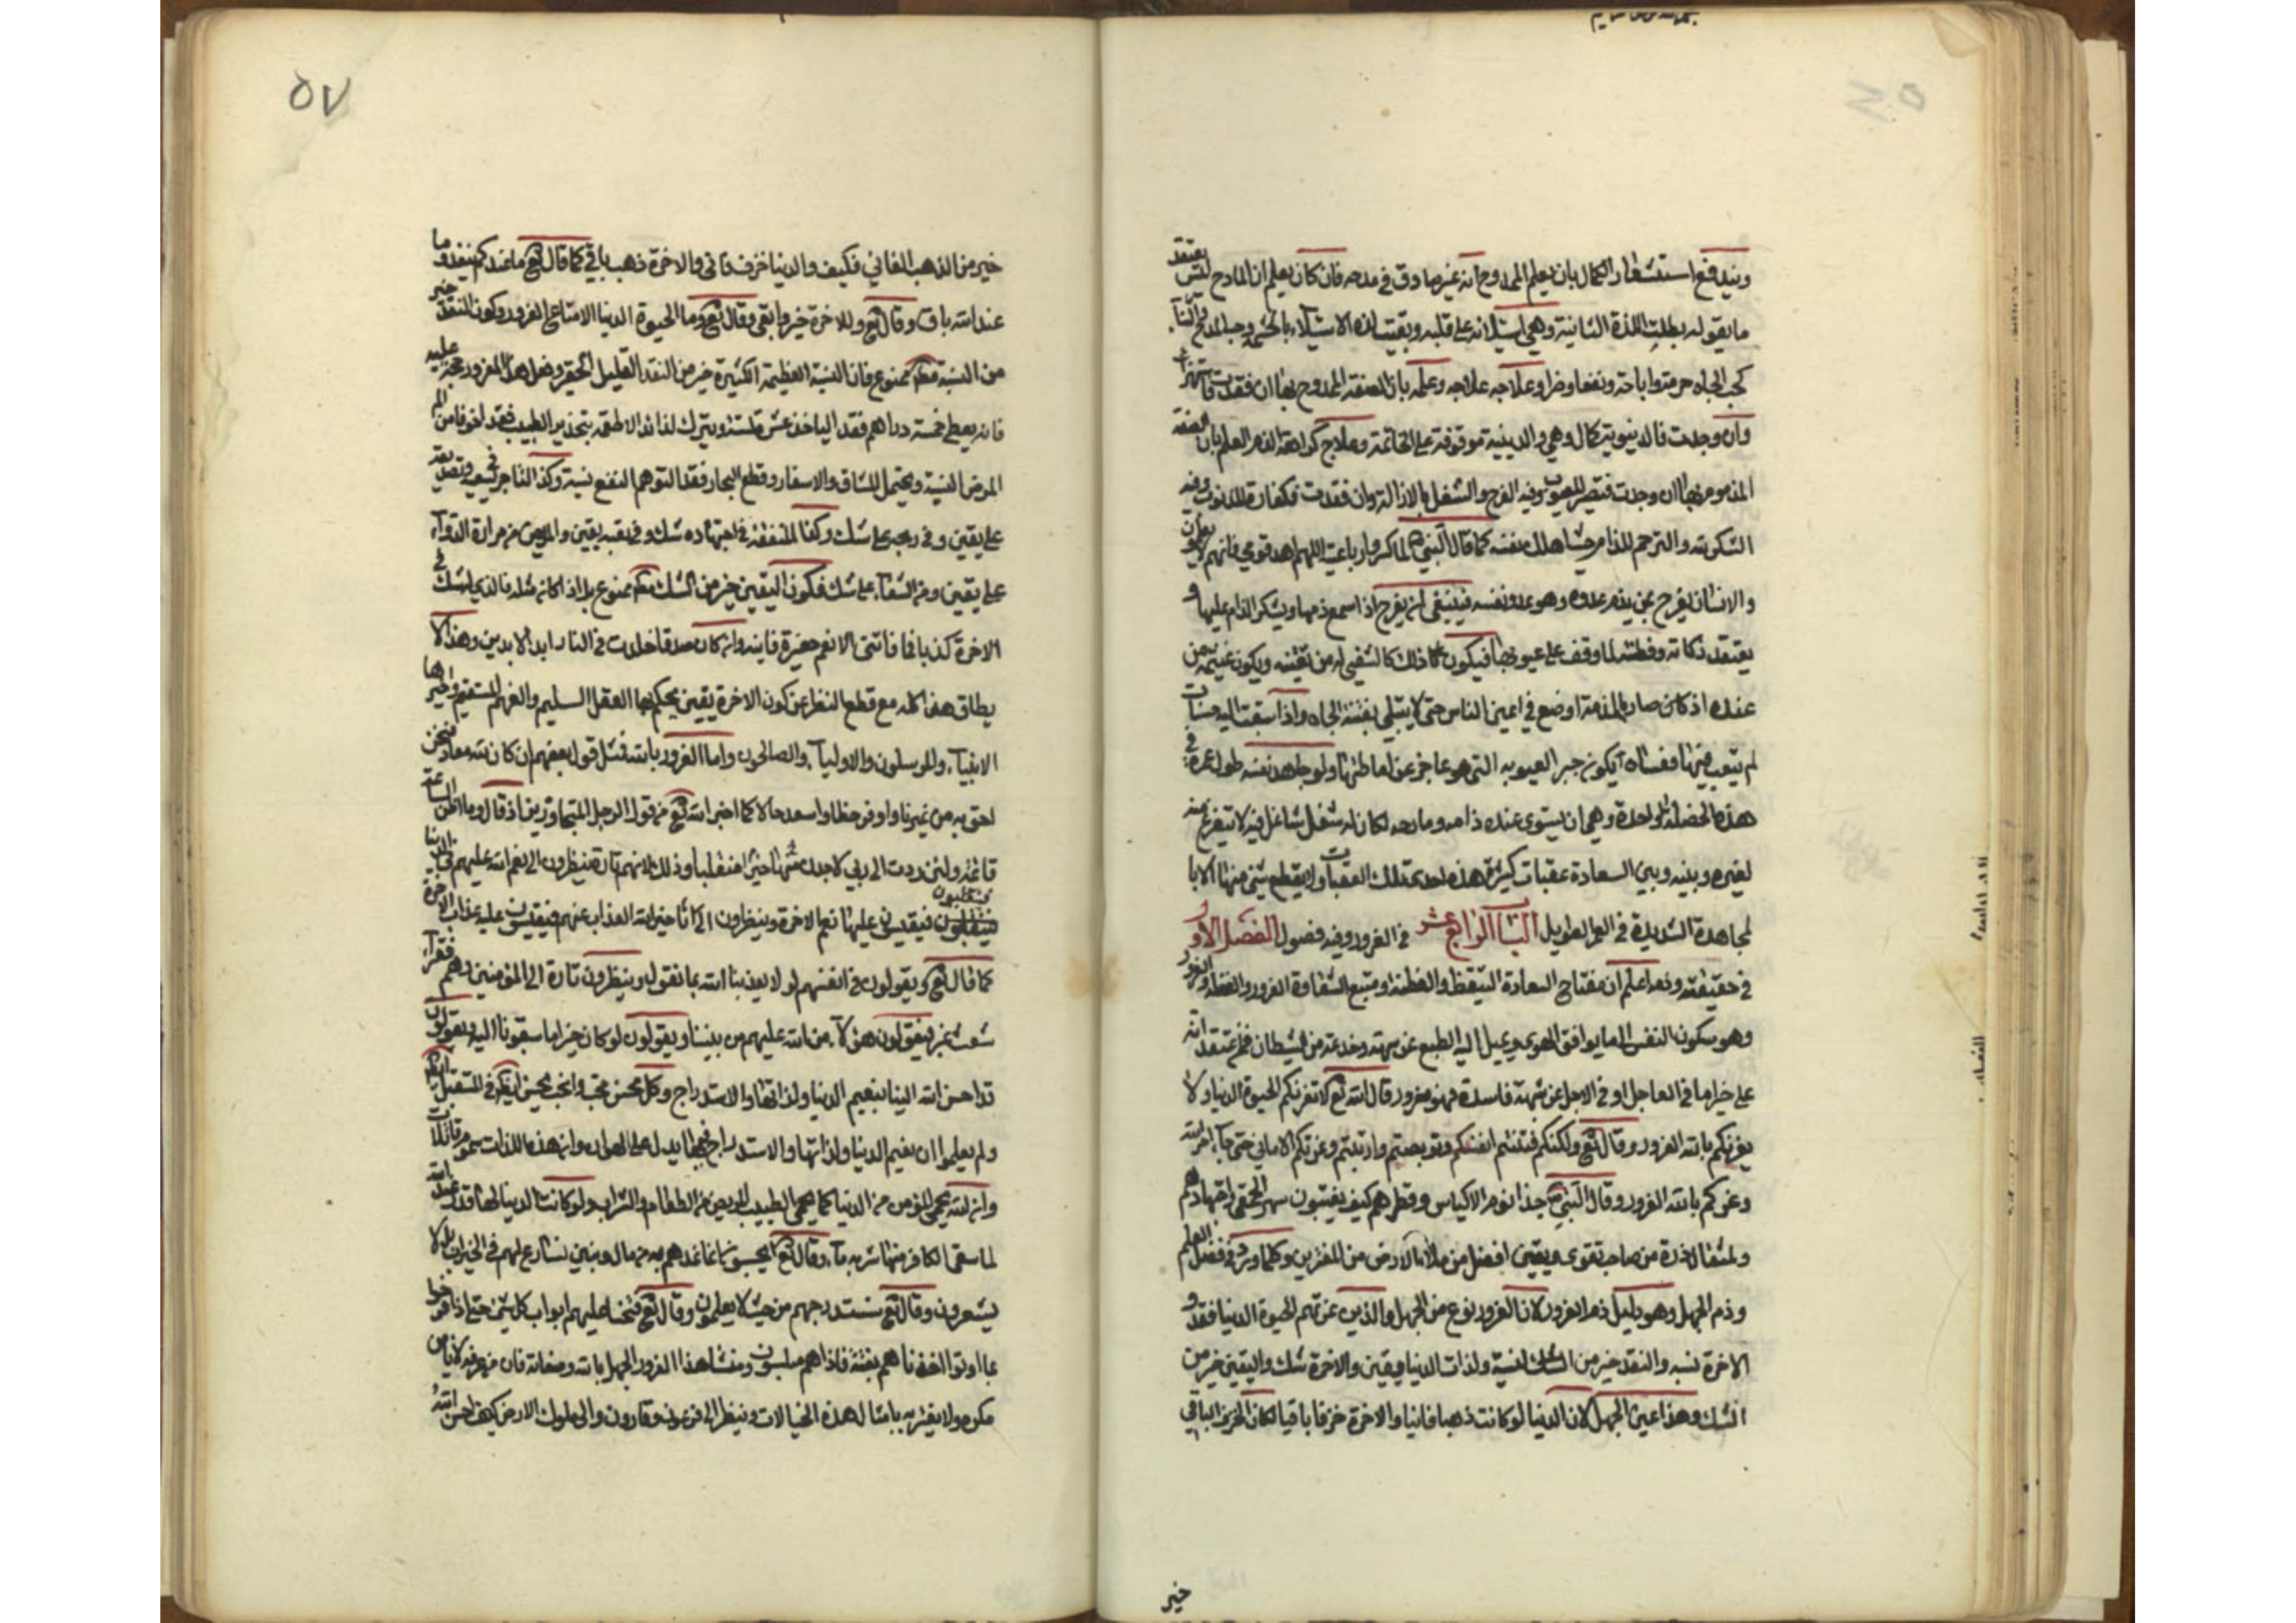 ويندفع استشعار الكمال بان يعلم الممدوح انه غير صادق في مدحه فان كان يعلم ان المادح ليس يعتقد
ما يقوله بطلت اللذة الثانية وهي استيلائه على قلبه وبقيت لذة الاستيلاء بالحشمة وحب المدح والثناء
كحب الجاه حرمة واباحة ونفعا وضرا وعلاجه علاجه وعلمه بان الصفة الممدوح بها ان فقدت فاستهزاء
وان وجدت فالدنيوية كمال وهمي والدينية موقوفة على الخاتمة وعلاج كراهة الذم العلم بان الصفة
المذموم بها ان وجدت فتبصر للعيوب وفيه الفرح والشغل بالازالة وان فقدت فكفارة للذنوب وفيه
الشكر والترحم للذام حيث اهلك نفسه كما قال النبي ص لما كسروا رباعيته اللهم اهد قومي فانهم لا يعلمون
والانسان يفرح بمن يذم عدوه وهو عدو نفسه فينبغي ان يفرح اذا سمع ذمها ويشكر الذام عليها و
يعتقد ذكائه وفطنته لما وقف على عيوبها فيكون ذلك كالتشفي له من نفسه ويكون غنيمة من
عنده اذ كان صار بالمذمة اوضع في اعين الناس حتى لا يبتلي بفتنة الجاه واذا سبقت اليه حسنات
لم يتعب فيها فعساه يكون جبر العيوبه التي هو عاجز عن اماطتها ولو جاهد نفسه طول عمره في
هذه الخصلة الواحدة وهي ان يستوي عنده ذامه ومادحه لكان له شغل شاغل فيه لا يتفرغ منه
لغيره وبينه وبين السعادة عقبات كثيرة هذه احد تلك العقبات ولا يقطع شيء منها الا با
لمجاهدة الشديدة في العمر الطويل الباب الرابع عشر في الغرور وفيه فصول الفصل الاول
في حقيقته وذمه اعلم ان مفتاح السعادة التيقظ والفطنة ومنبع الشقاوة الغرور والغفلة والغرور
وهو سكون النفس الى ما يوافق الهوى ويميل اليه الطبع عن شبهة وخدعة من الشيطان فمن اعتقد انه
على خير اما في العاجل او في الاجل عن شبهة فاسدة فهو مغرور قال الله تع لا تغرنكم الحيوة الدنيا ولا
يغرنكم بالله الغرور وقال تع ولكنكم فتنتم انفسكم وتربصتم وارتبتم وغرتكم الاماني حتى جاء امر الله
وغركم بالله الغرور وقال النبي ص حبذا نوم الاكياس وفطرهم كيف يغبنون سهر الحمقى واجتهادهم
ولمثقال ذرة من صاحب تقوى ويقين افضل من ملاء الارض من المغترين وكلما ورد في فضل العلم
وذم الجهل وهو دليل ذم الغرور لان الغرور نوع من الجهل والذين غرتهم الحيوة الدنيا فقد و
الاخرة نسيه والنقد خير من النسية ولذات الدنيا يقين والاخرة شك واليقين خير من
الشك وهذا عين الجهل لان الدنيا لو كانت ذهبا فانيا والاخرة خزفا باقيا لكان الخزف الباقي
خير
٥٧
خير من الذهب الفاني فكيف والدنيا خزف فاني والاخرة ذهب باقي كما قال تع ما عندكم ينفد وما
عند الله باق وقال تع وللاخرة خير وابقى وقال تع وما الحيوة الدنيا الا متاع الغرور وكون النقد خير
من النسية مط ممنوع فان النسية العظيمة الكثيرة خير من النقد القليل الحقير وفعل هذا المغرور حجة عليه
فانه يعطي خمسة دراهم نقدا لياخذ عشرة نسية ويترك لذائذ الاطعمة بتحذير الطبيب نقدا خوفا من الم
المرض النسية ويحتمل المشاق والاسفار وقطع البحار نقدا لتوهم النفع نسية وكذا التاجر في سعيه وتصديقه
على يقين وفي ربحه على شك وكذا المتفقه في اجتهاده شك وفي تعبه يقين والمريض من مرارة الدواء
على يقين ومن الشفاء على شك فكون اليقين خير من الشك مط ممنوع بل اذا كان مثله فالذي يشك في
الاخرة كذبا فما فاتني الا نعم حقيرة فانية وان كان صدقا خلدت في النار ابد الابدين وهذا لا
يطاق هذا كله مع قطع النظر عن كون الاخرة يقين يحكم بها العقل السليم والفهم المستقيم واخبر بها
الانبياء والمرسلون والاولياء والصالحون واما الغرور بالله فمثل قول بعضهم ان كان لله معاد فنحن
احق به من غيرنا واوفر حظا واسعد حالا كما اخبر الله تع من قول الرجل المتجاورين اذ قال وما اظن الساعة
قائمة ولئن رددت الى ربي لاجدن خيرا منها منقلبا وذلك لانهم تارة ينظرون الى نعم الله عليهم في الدنيا
فيقيسون عليها نعم الاخرة وينظرون الى تاخير الله العذاب عنهم فيقيسون عليه عذاب الاخرة
كما قال تع ويقولون في انفسهم لو لا يعذبنا الله بما نقول وينظرون تارة الى المؤمنين وهم فقراء
شعث غبر فيقولون هؤلاء من الله عليهم من بيننا ويقولون لو كان خيرا ما سبقونا اليه ويقولون
قد احسن الله الينا بنعيم الدنيا ولذاتها والاستدراج وكل محسن محب والمحب يحسن ايظ في المستقبل
ولم يعلموا ان نعيم الدنيا ولذاتها والاستدراج فيها يدل على الهوان وان هذه اللذات سموم قاتلات
وان الله يحمي المؤمن من الدنيا كما يحمي الطبيب المريض من الطعام والشراب ولو كانت الدنيا لها قدر عند الله
لما سقى الكافر منها شربة ماء وقال تع ايحسبون انما نمدهم به من مال وبنين نسارع لهم في الخيرات بل لا
يشعرون وقال تع سنستدرجهم من حيث لا يعلمون وقال تع فتحنا عليهم ابواب كل شيء حتى اذا فرحوا
بما اوتوا اخذناهم بغتة فاذا هم مبلسون ومنشا هذا الغرور الجهل بالله وصفاته فان من عرفه لا يامن
مكره ولا يغتر به بامثال هذه الخيالات وينظر الى فرعون وقارون والى ملوك الارض كيف احسن الله